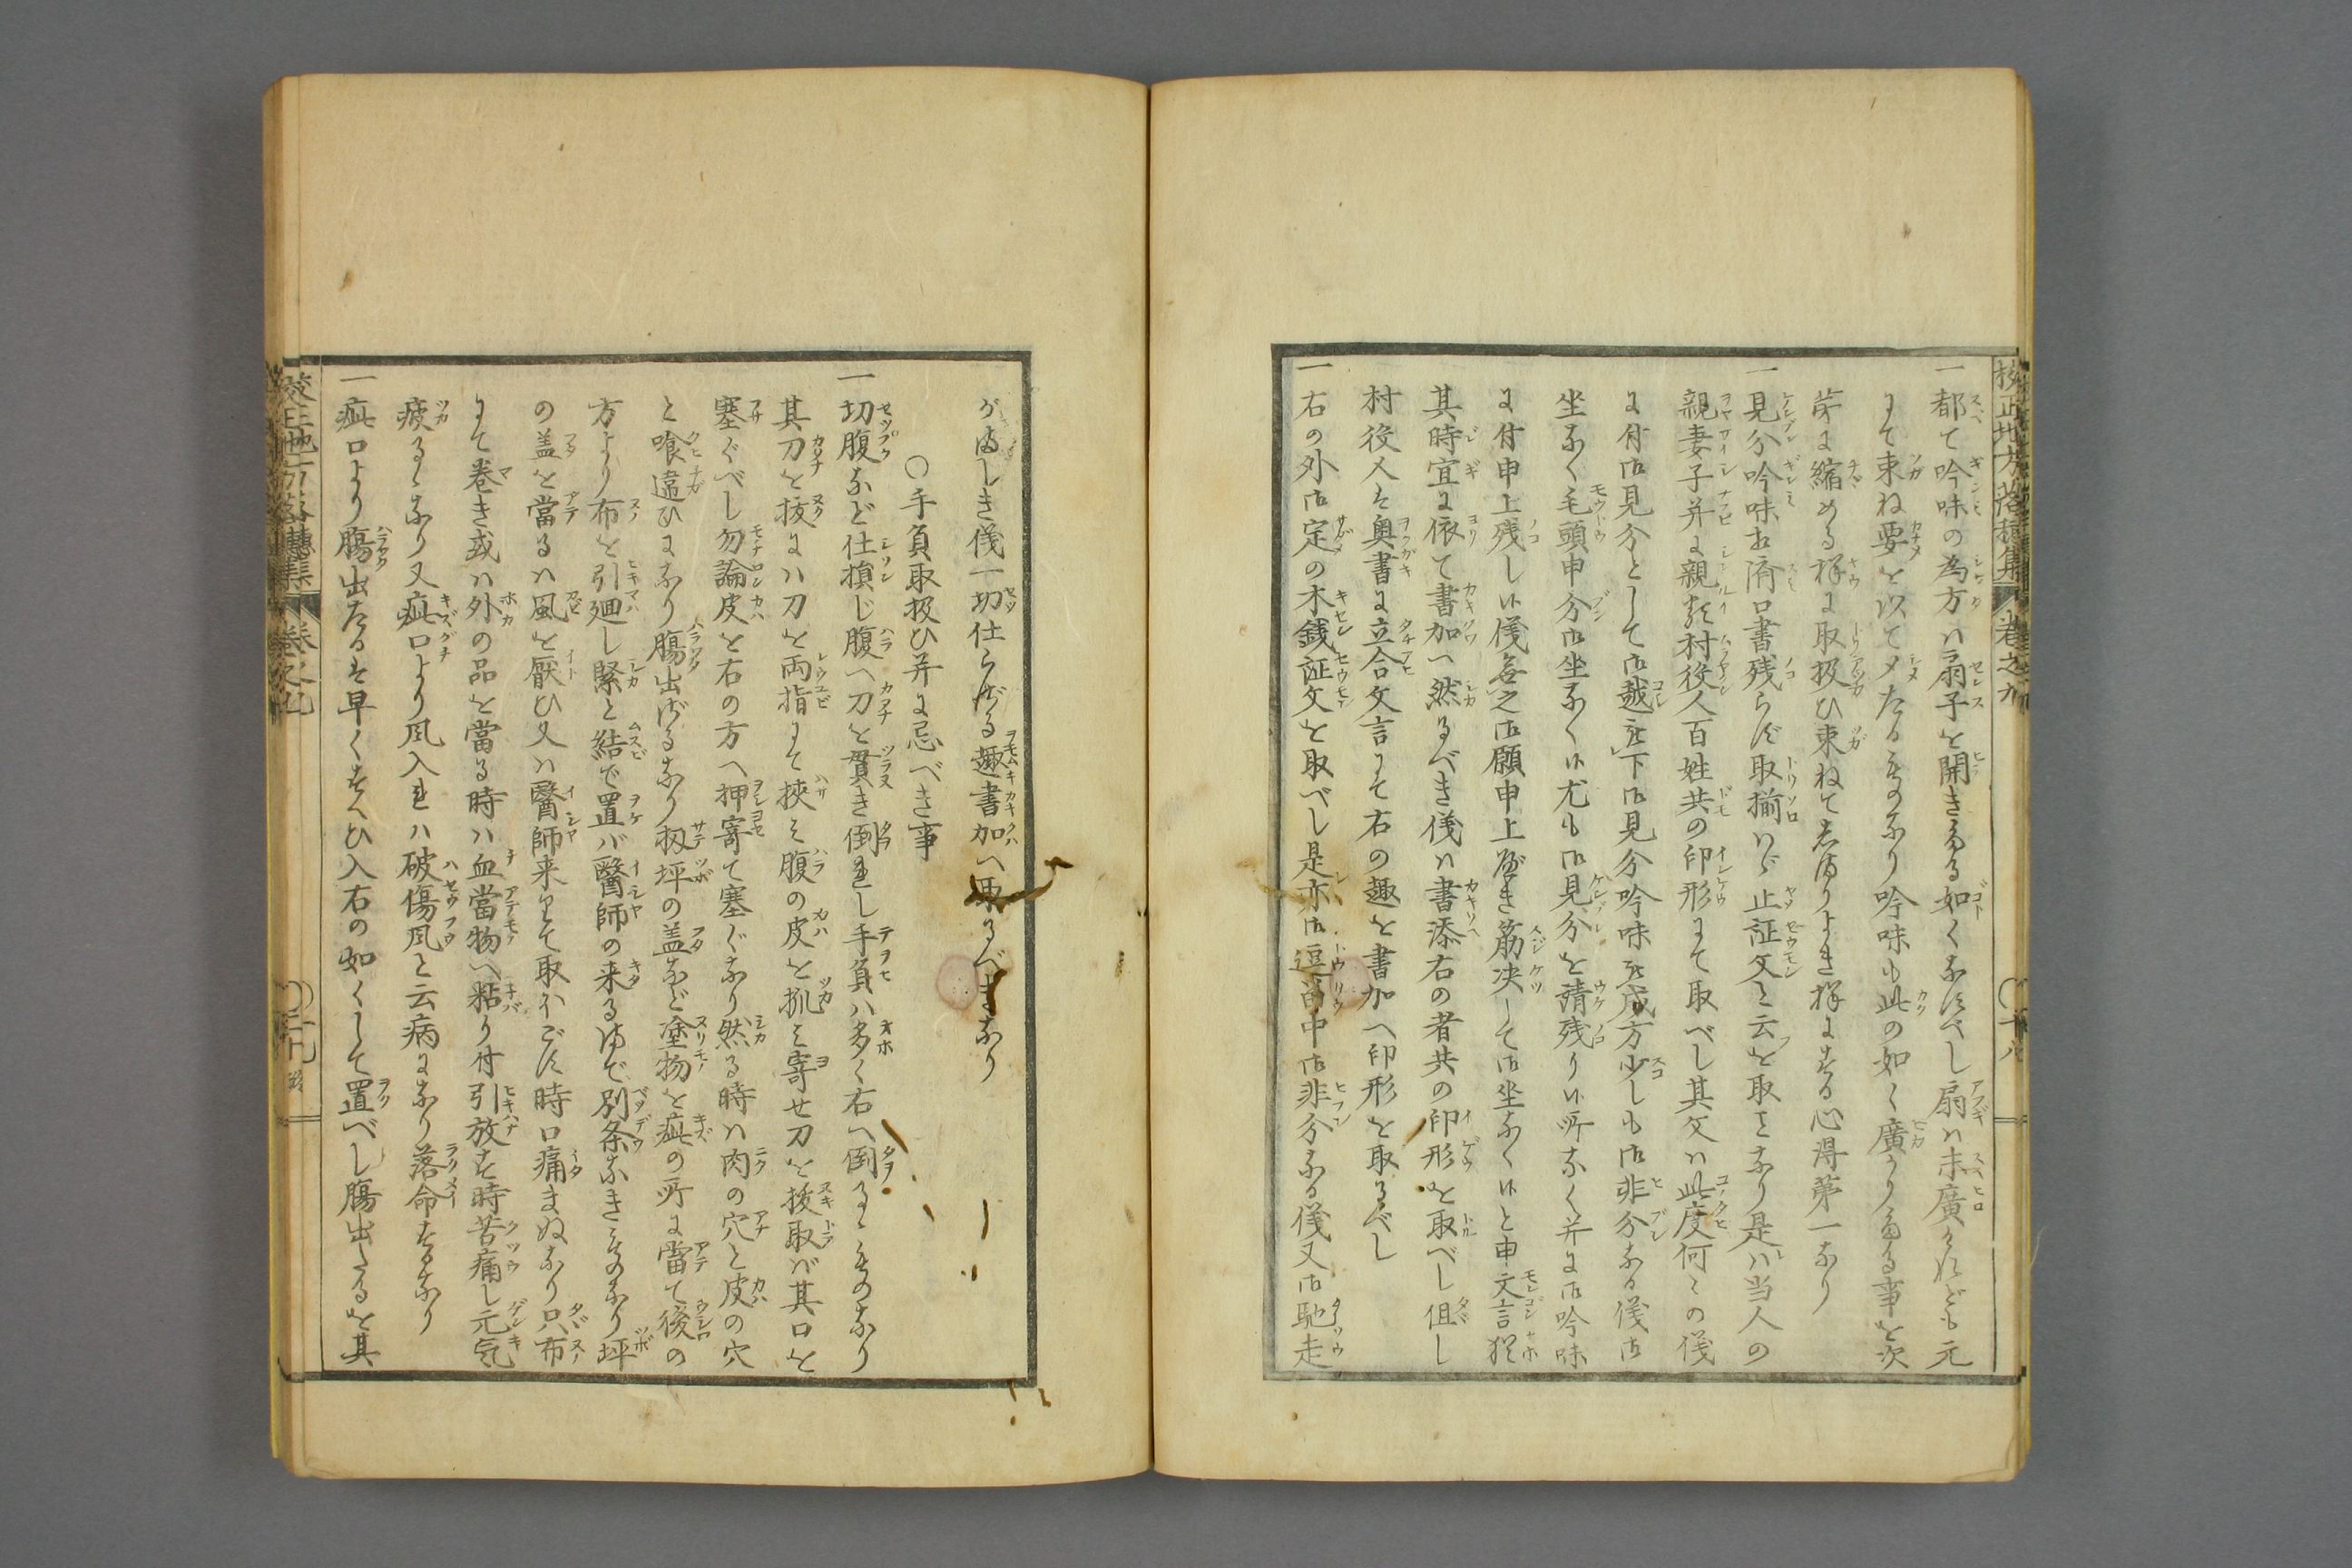 校正地方落穂集 巻之九 〇十八
一都て吟味の為方ハ扇子を開きたる如くなすべし扇ハ末廣けれども元
にて束ね要を以て〆たるものなり吟味も此の如く廣がりたる事を次
第に縮める様に取扱ひ束ねて志まりよき様にする心得第一なり
一見分吟味相済口書残らず取揃ハゞ止証文と云を取ことなり是ハ当人の
親妻子并に親類村役人百姓共の印形にて取べし其文ハ此度何々の儀
に付御見分として御越被下御見分吟味被成方少しも御非分なる儀御
坐なく毛頭申分御坐なく候尤も御見分を請残り候所なく并に御吟味
に付申上残し候儀無之御願申上度き筋决して御坐なく候と申文言猶
其時宜に依て書加へ然るべき儀ハ書添右の者共の印形を取べし但し
村役人は奥書に立合文言にて右の趣を書加へ印形を取るべし
一右の外御定の木銭証文を取べし是亦御逗留中御非分なる儀又御馳走
がましき儀一切仕らざる趣書加へ取るべきなり
〇手負取扱ひ并に忌べき事
一切腹など仕損じ腹へ刀を貫き倒れし手負ハ多く右へ倒るゝものなり
其刀を抜にハ刀を両指にて挟み腹の皮を抓み寄せ刀を抜取バ其口を
塞ぐべし勿論皮を右の方へ押寄て塞ぐなり然る時ハ肉の穴と皮の穴
と喰違ひになり腸出ざるなり扨坪の盖など塗物を疵の所に當て後の
方より布を引廻し緊と結で置バ醫師の来るまで別条なきものなり坪
の盖を當るハ風を厭ひ又ハ醫師来りて取ほごす時口痛まぬなり只布
にて巻き或ハ外の品を當る時ハ血當物へ粘り付引放す時苦痛し元気
疲るゝなり又疵口より風入れハ破傷風と云病になり落命するなり
一疵口より腸出たるは早くすくひ入右の如くして置べし腸出たるを其
校正地方落穂集 巻之九